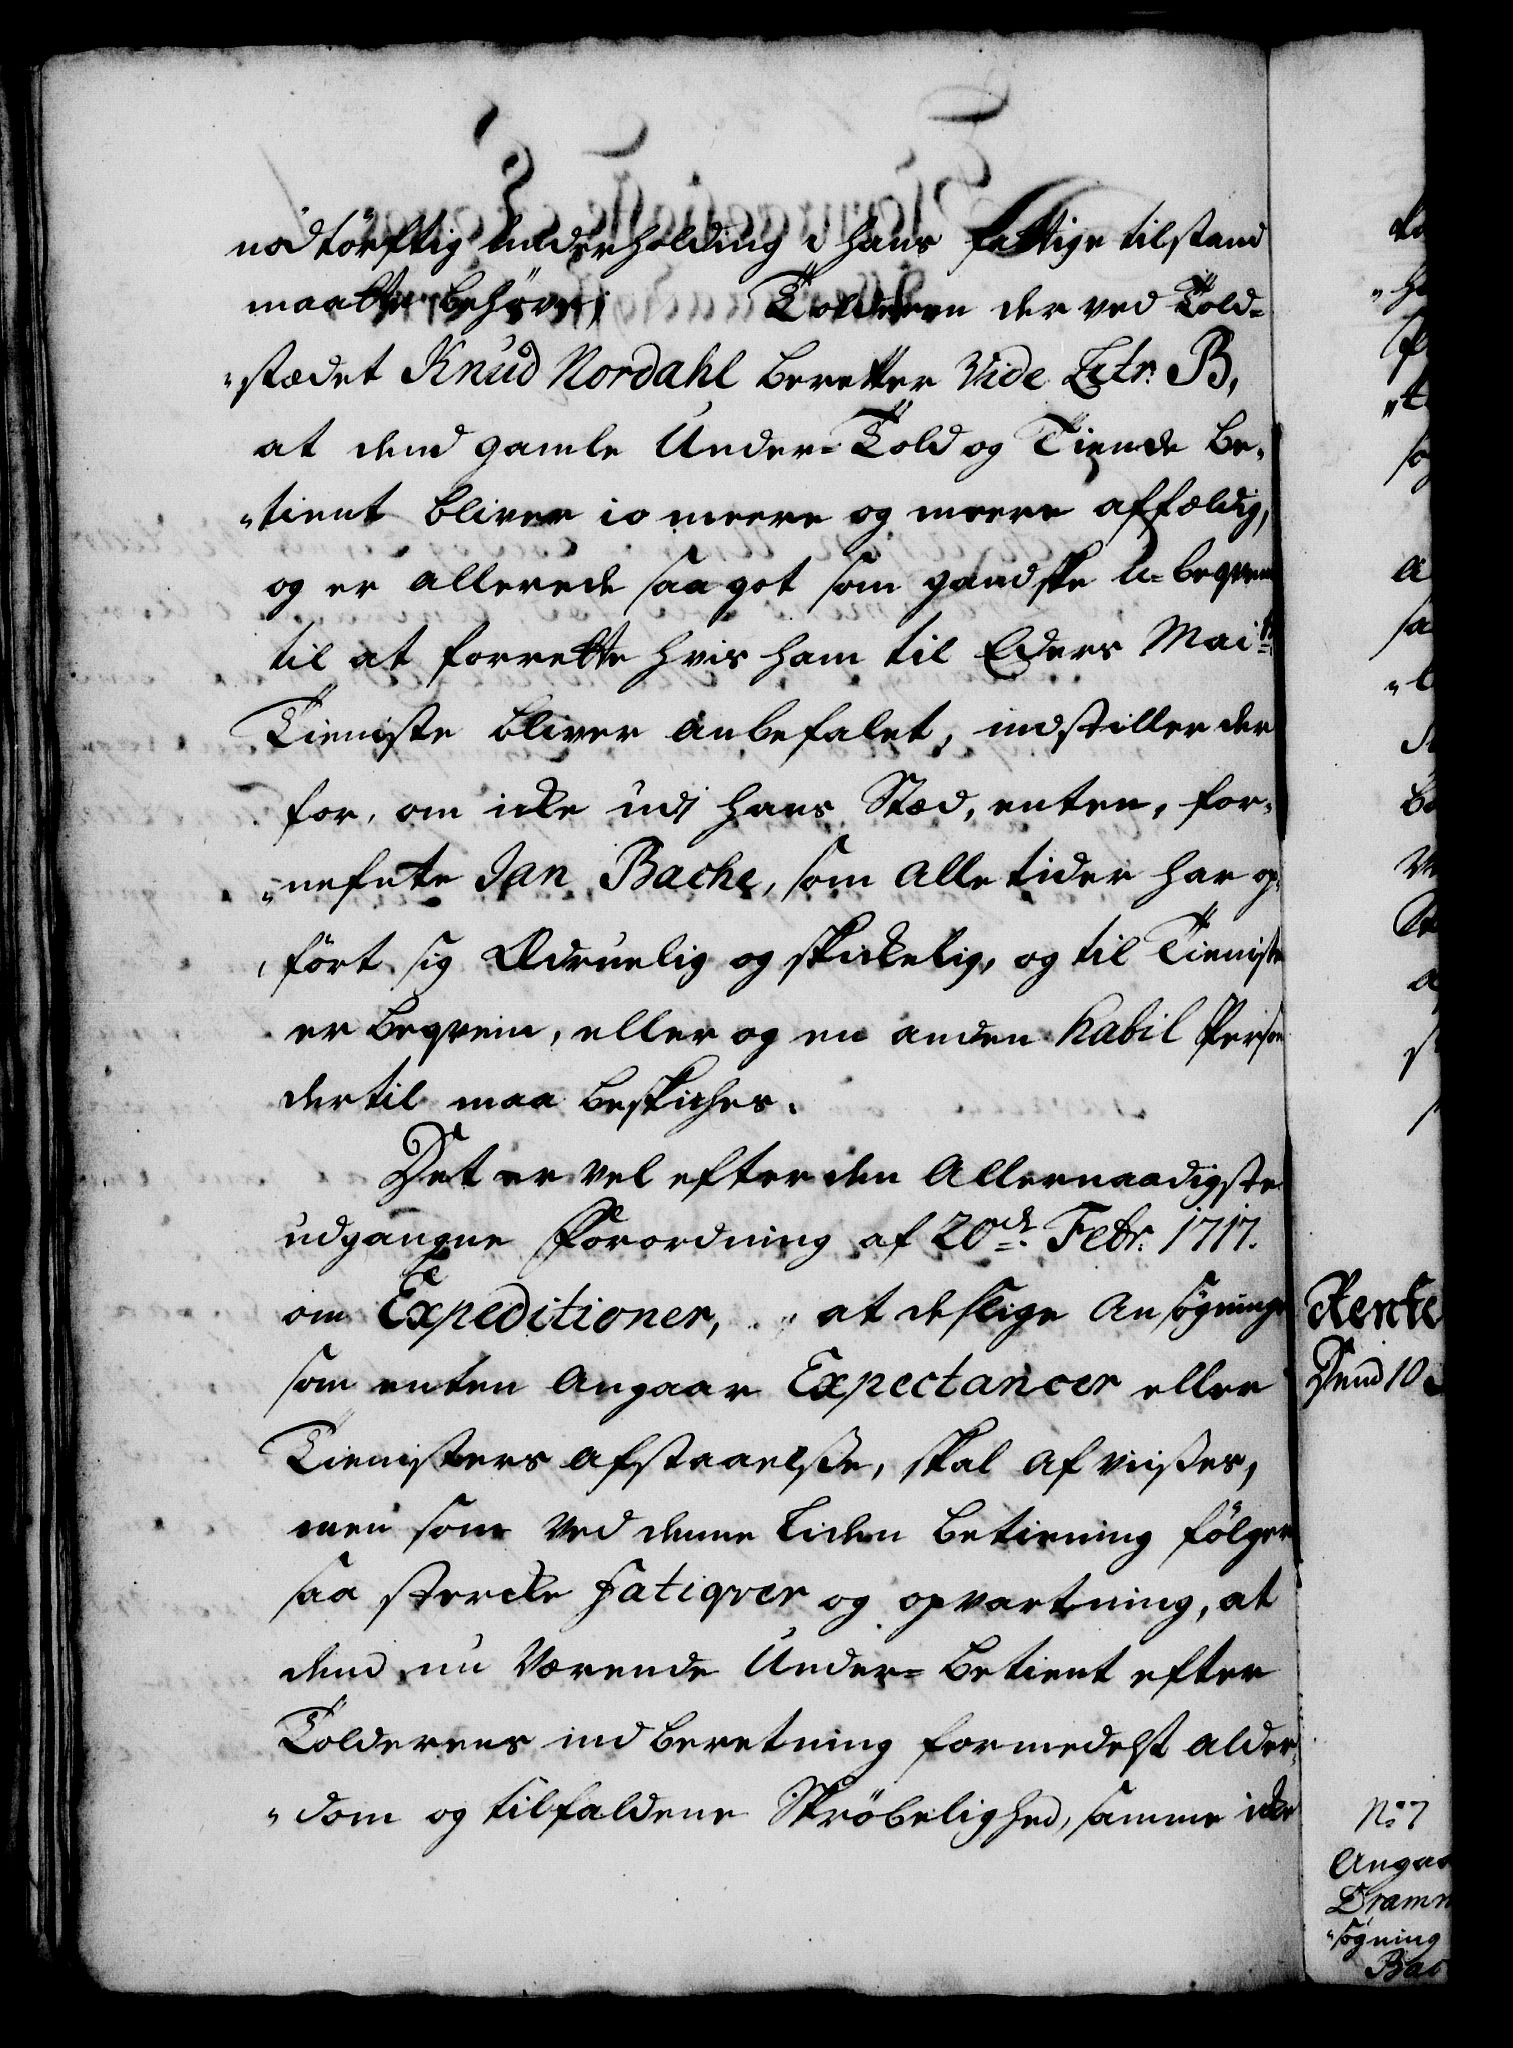 nödtörftig underholding i hans fattige tilstand
maatte behöve; Tolderen der ved Told-
"stædet Knud Nordahl beretter Vide Litr: B,
at dend gamle Under-Told og Tiende Be-
"tient bliver io meere og meere affældig,
og er allerede saa got som gandske u-beqvem
til at forrette hvis ham til Eders Mai:ts
Tieniste bliver anbefalet, indstiller der
for, om icke udj hans Stæd, enten, for-
"nefnte Jan Bache, som alle tider har op-
"fört sig Ædruelig og skickelig, og til Tieniste
er beqvem, eller og en anden habil Person
dertil maa beskickes.
Det er vel efter den Allernaadigste
udgangne Forordning af 20de Febr: 1717.
om Expeditioner, at deslige Ansøgninger
som enten Angaar Expectancer eller
Tienisters afstaaelsse, skal afviisses,
men som ved denne liden betiening fölger
saa stercke fatiqver og opvartning, at
dend nu værende Under-betient efter
Tolderens ind beretning formedelst alder-
"dom og tilfaldene Skröbelighed, samme icke
Rente
Dend 10
No 7
Angaa
Dramm
"søgning
Bac